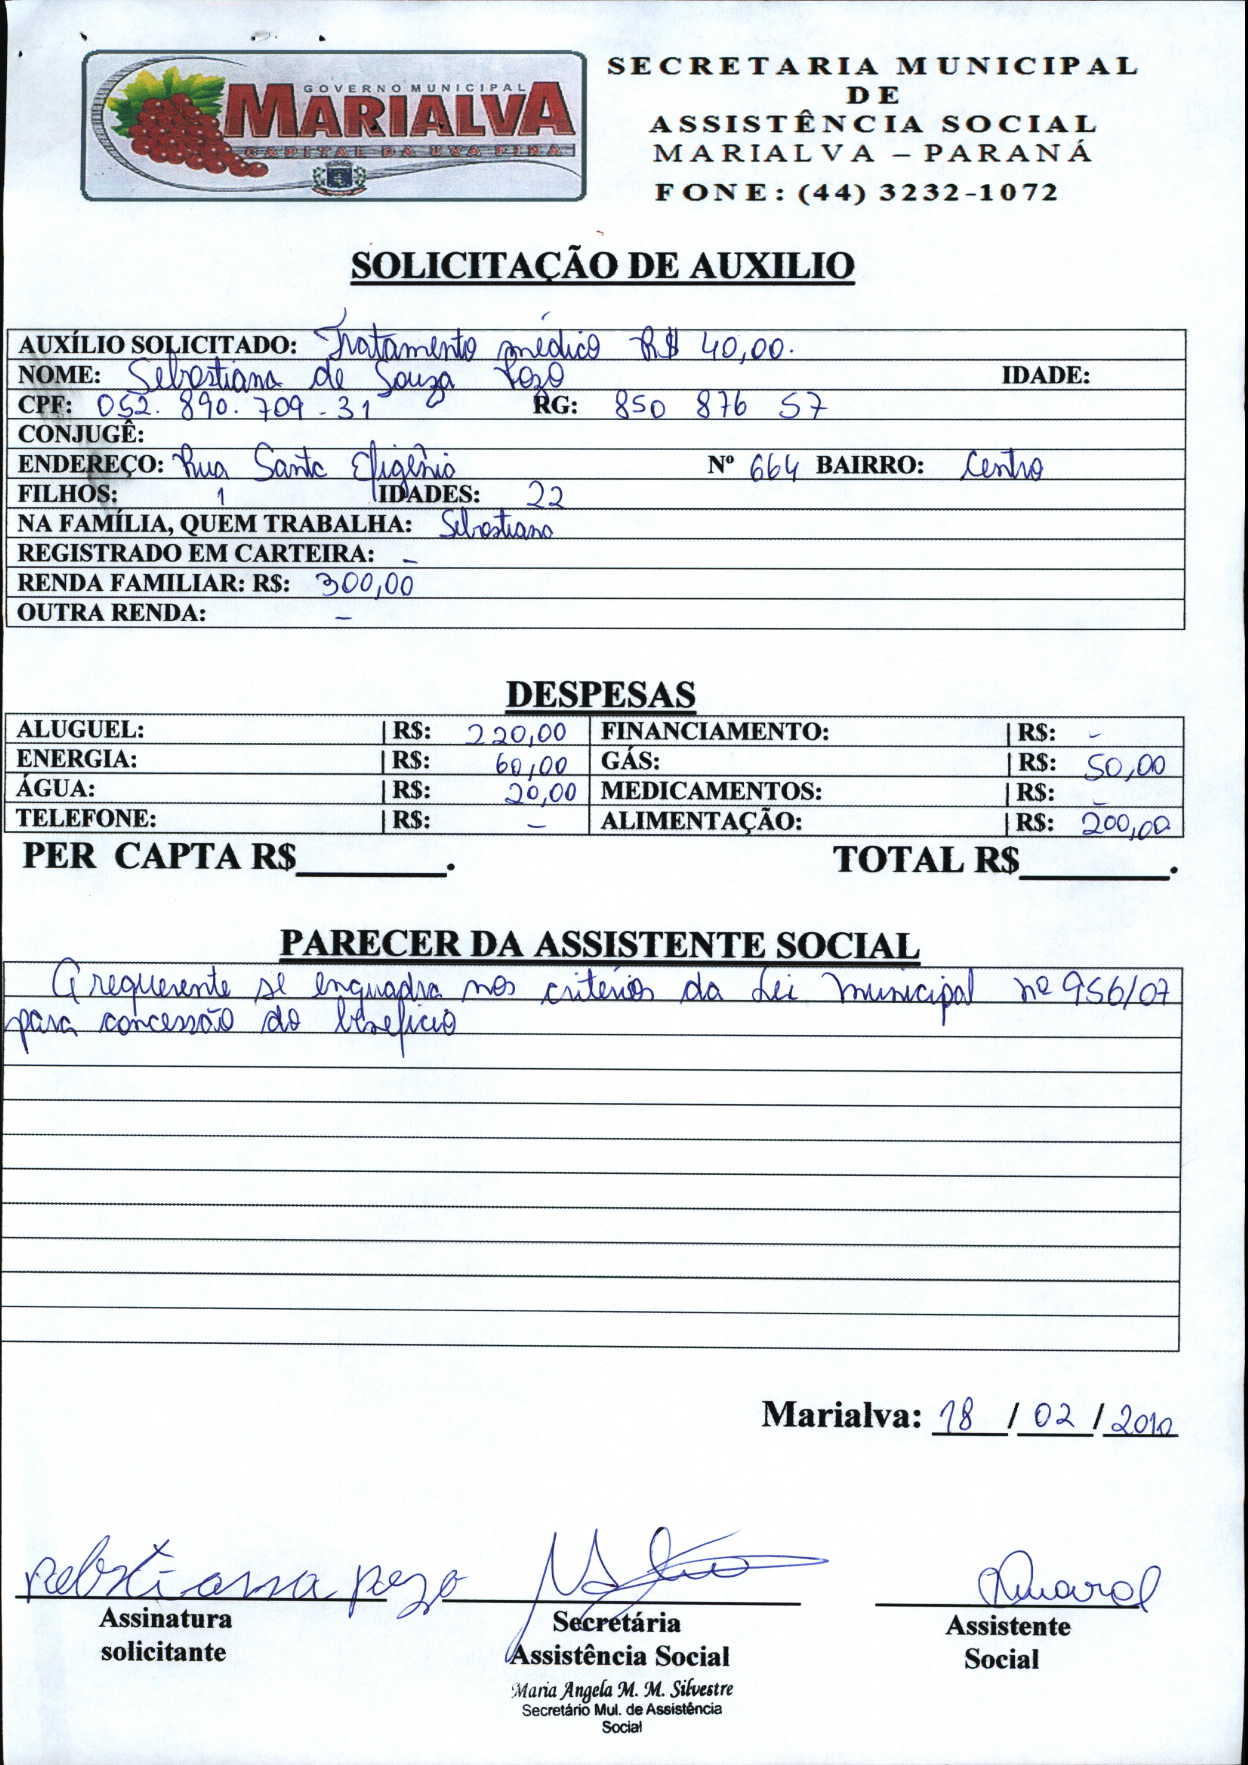 GOVERNO MUNICIPAL
MARIALVA
CAPITAL DA UVA FINA
SECRETARIA MUNICIPAL
DE
ASSISTÊNCIA SOCIAL
MARIALVA – PARANÁ
FONE: (44) 3232-1072
SOLICITAÇÃO DE AUXILIO
AUXÍLIO SOLICITADO: Tratamento médico R$ 40,00.
NOME: Sebastiana de Souza Pozo IDADE:
CPF: 052.890.709-31 RG: 850 876 57
CONJUGÊ:
ENDEREÇO: Rua Santa Efigênia Nº 664 BAIRRO: Centro
FILHOS: 1 IDADES: 22
NA FAMÍLIA, QUEM TRABALHA: Sebastiana
REGISTRADO EM CARTEIRA: –
RENDA FAMILIAR: R$: 300,00
OUTRA RENDA: –
DESPESAS
ALUGUEL: | R$: 220,00 FINANCIAMENTO: | R$: -
ENERGIA: | R$: 60,00 GÁS: | R$: 50,00
ÁGUA: | R$: 20,00 MEDICAMENTOS: | R$: -
TELEFONE: | R$: – ALIMENTAÇÃO: | R$: 200,00
PER CAPTA R$________. TOTAL R$________.
PARECER DA ASSISTENTE SOCIAL
A requerente se enquadra nos critérios da Lei Municipal nº 956/07
para concessão do benefício
Marialva: 18 / 02 / 2010
sebstiana pozo
Assinatura
solicitante
Secretária
Assistência Social
Maria Angela M. M. Silvestre
Secretário Mul. de Assistência
Social
Assistente
Social